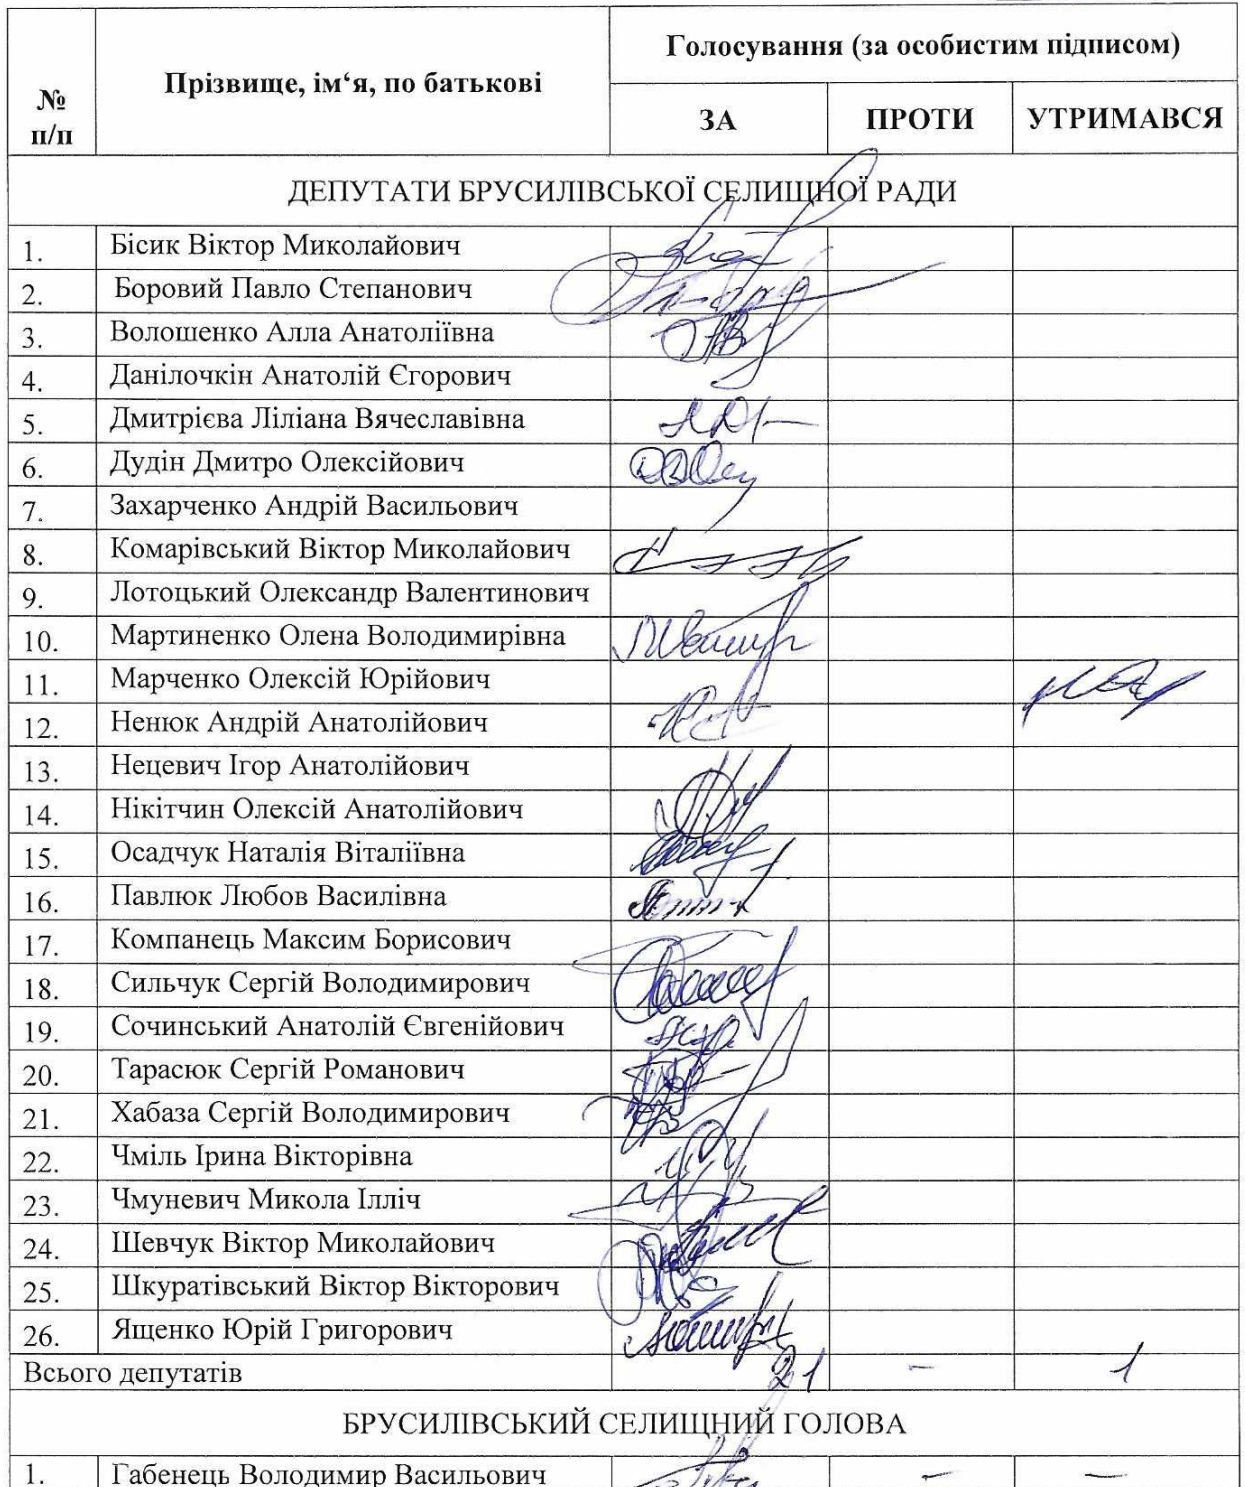 № п/п
Прізвище, ім‘я, по батькові
Голосування (за особистим підписом)
ЗА ПРОТИ УТРИМАВСЯ
ДЕПУТАТИ БРУСИЛІВСЬКОЇ СЕЛИЩНОЇ РАДИ
1. Бісик Віктор Миколайович
2. Боровий Павло Степанович
3. Волошенко Алла Анатоліївна
4. Данілочкін Анатолій Єгорович
5. Дмитрієва Ліліана Вячеславівна
6. Дудін Дмитро Олексійович
7. Захарченко Андрій Васильович
8. Комарівський Віктор Миколайович
9. Лотоцький Олександр Валентинович
10. Мартиненко Олена Володимирівна
11. Марченко Олексій Юрійович
12. Ненюк Андрій Анатолійович
13. Нецевич Ігор Анатолійович
14. Нікітчин Олексій Анатолійович
15. Осадчук Наталія Віталіївна
16. Павлюк Любов Василівна
17. Компанець Максим Борисович
18. Сильчук Сергій Володимирович
19. Сочинський Анатолій Євгенійович
20. Тарасюк Сергій Романович
21. Хабаза Сергій Володимирович
22. Чміль Ірина Вікторівна
23. Чмуневич Микола Ілліч
24. Шевчук Віктор Миколайович
25. Шкуратівський Віктор Вікторович
26. Ященко Юрій Григорович
Всього депутатів 21 - 1
БРУСИЛІВСЬКИЙ СЕЛИЩНИЙ ГОЛОВА
1. Габенець Володимир Васильович - -